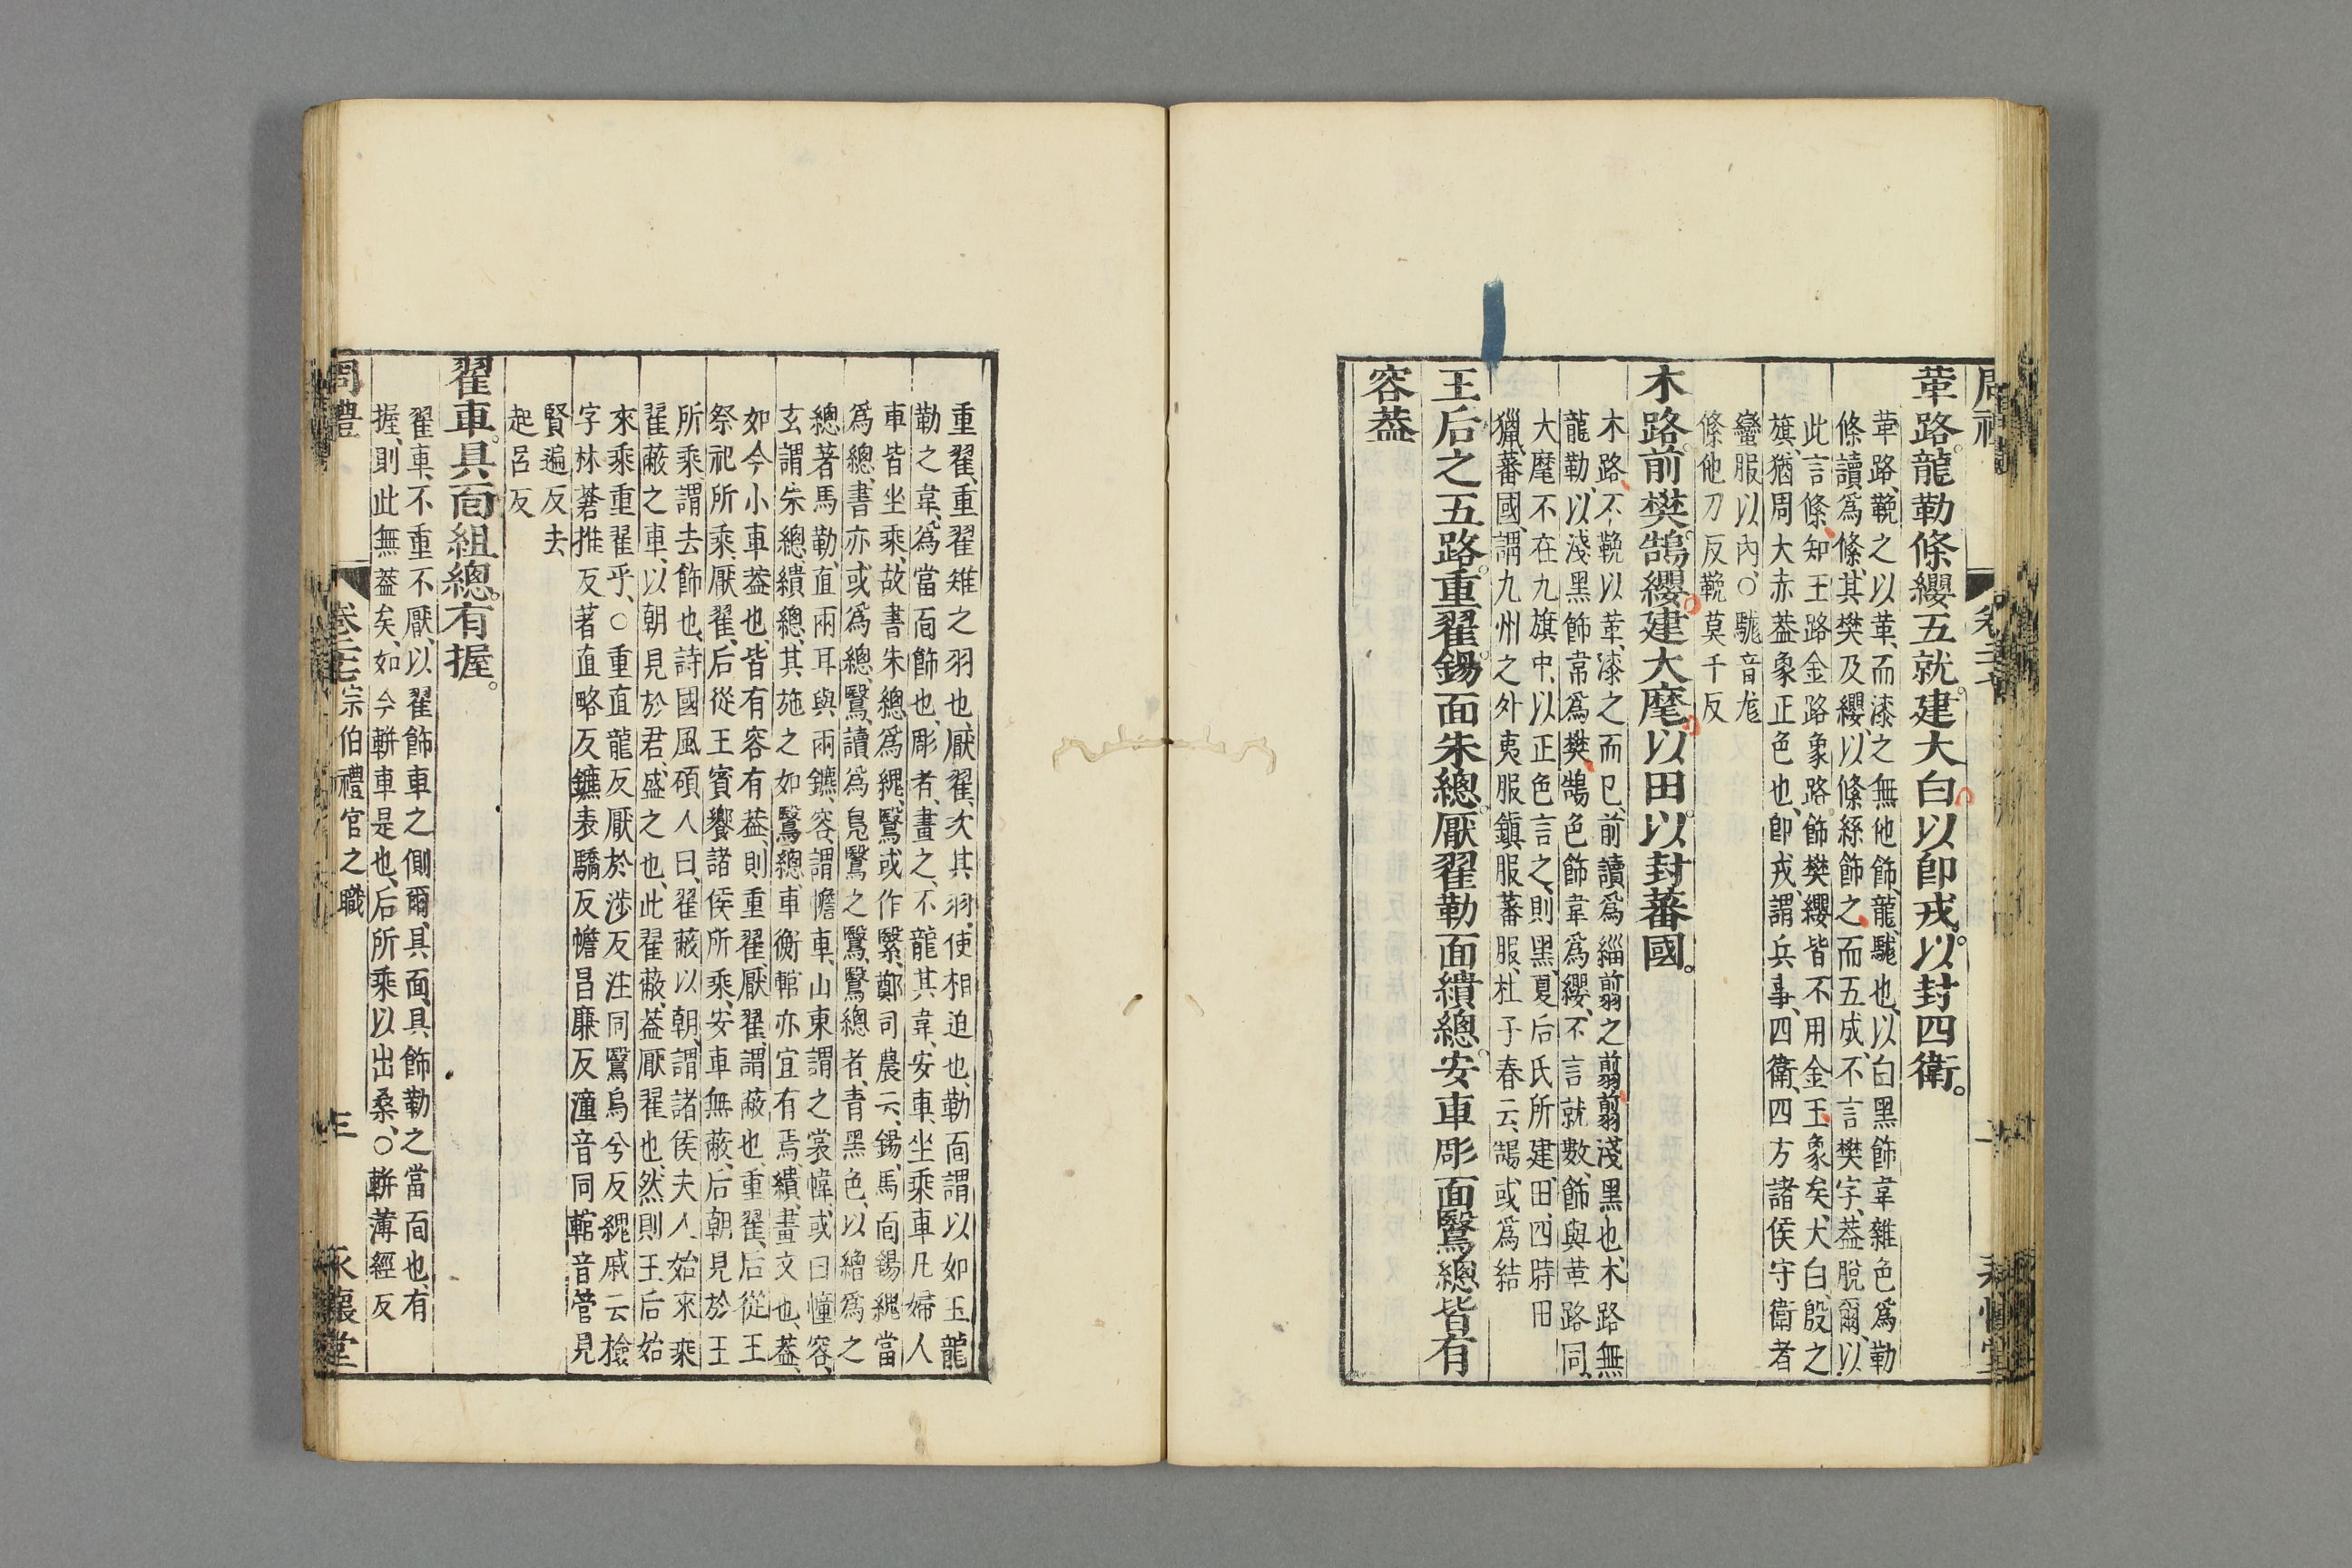 革路。龍勒條纓五就。建大白以卽戎。以封四衛。
革路、鞔之以革、而漆之無他飾、龍、駹也、以白黑飾韋雜色爲勒
條讀爲絛、其樊及纓、以絛絲飾之、而五成、不言樊字、葢脫爾、以
此言絛、知玉路金路象路飾樊纓皆不用金玉象矣、大白、殷之
旗、猶周大赤葢象正色也、卽戎、謂兵事、四衛、四方諸侯守衛者
蠻服以內、○駹音尨
絛他刀反鞔莫干反
木路。前樊。鵠纓。建大麾。以田。以封蕃國。
木路、不鞔以革、漆之而已、前讀爲緇翦之翦、翦淺黑也、木路無
龍勒、以淺黑飾韋爲樊、鵠色飾韋爲纓、不言就數、飾與革路同、
大麾不在九旗中、以正色言之、則黑、夏后氏所建、田、四時田
獵、蕃國、謂九州之外夷服鎮服蕃服、杜子春云、鵠、或爲結
王后之五路。重翟。鍚面朱總。厭翟勒面繢總。安車彫面鷖總皆有
容葢
重翟、重翟雉之羽也、厭翟、次其羽、使相迫也、勒面、謂以如玉龍
勒之韋、爲當面飾也、彫者、畫之、不龍其韋、安車、坐乘車凡婦人
車皆坐乘、故書朱總爲繅、鷖或作繄、鄭司農云、鍚、馬面鍚繅當
爲總、書亦或爲總、鷖、讀爲鳧鷖之鷖、鷖總者、青黑色、以繒爲之
總著馬勒、直兩耳與兩鑣、容、謂幨車、山東謂之裳幃、或曰幢容、
玄謂朱總、繢總、其施之如鷖總、車衡輨亦宜有焉、繢、畫文也、葢、
如今小車葢也、皆有容有葢、則重翟、厭翟、謂蔽也、重翟、后從王
祭祀所乘、厭翟、后從王賓饗諸侯所乘、安車無蔽、后朝見於王
所乘、謂去飾也、詩國風碩人曰、翟蔽以朝、謂諸侯夫人始來乘
翟蔽之車、以朝見於君、盛之也、此翟蔽、葢厭翟也、然則王后始
來乘重翟乎、○重直龍反厭於涉反注同鷖烏兮反繅戚云檢
字林蒼推反著直略反鑣表驕反幨昌廉反潼音同輨音管見
賢遍反去
起呂反
翟車。具面組總。有握。
翟車、不重不厭、以翟飾車之側爾、具面、具飾勒之當面也、有
握、則此無葢矣、如今輧車是也、后所乘以出桑、○輧薄經反
周禮
卷二七
宗伯禮官之職
三
永懷堂